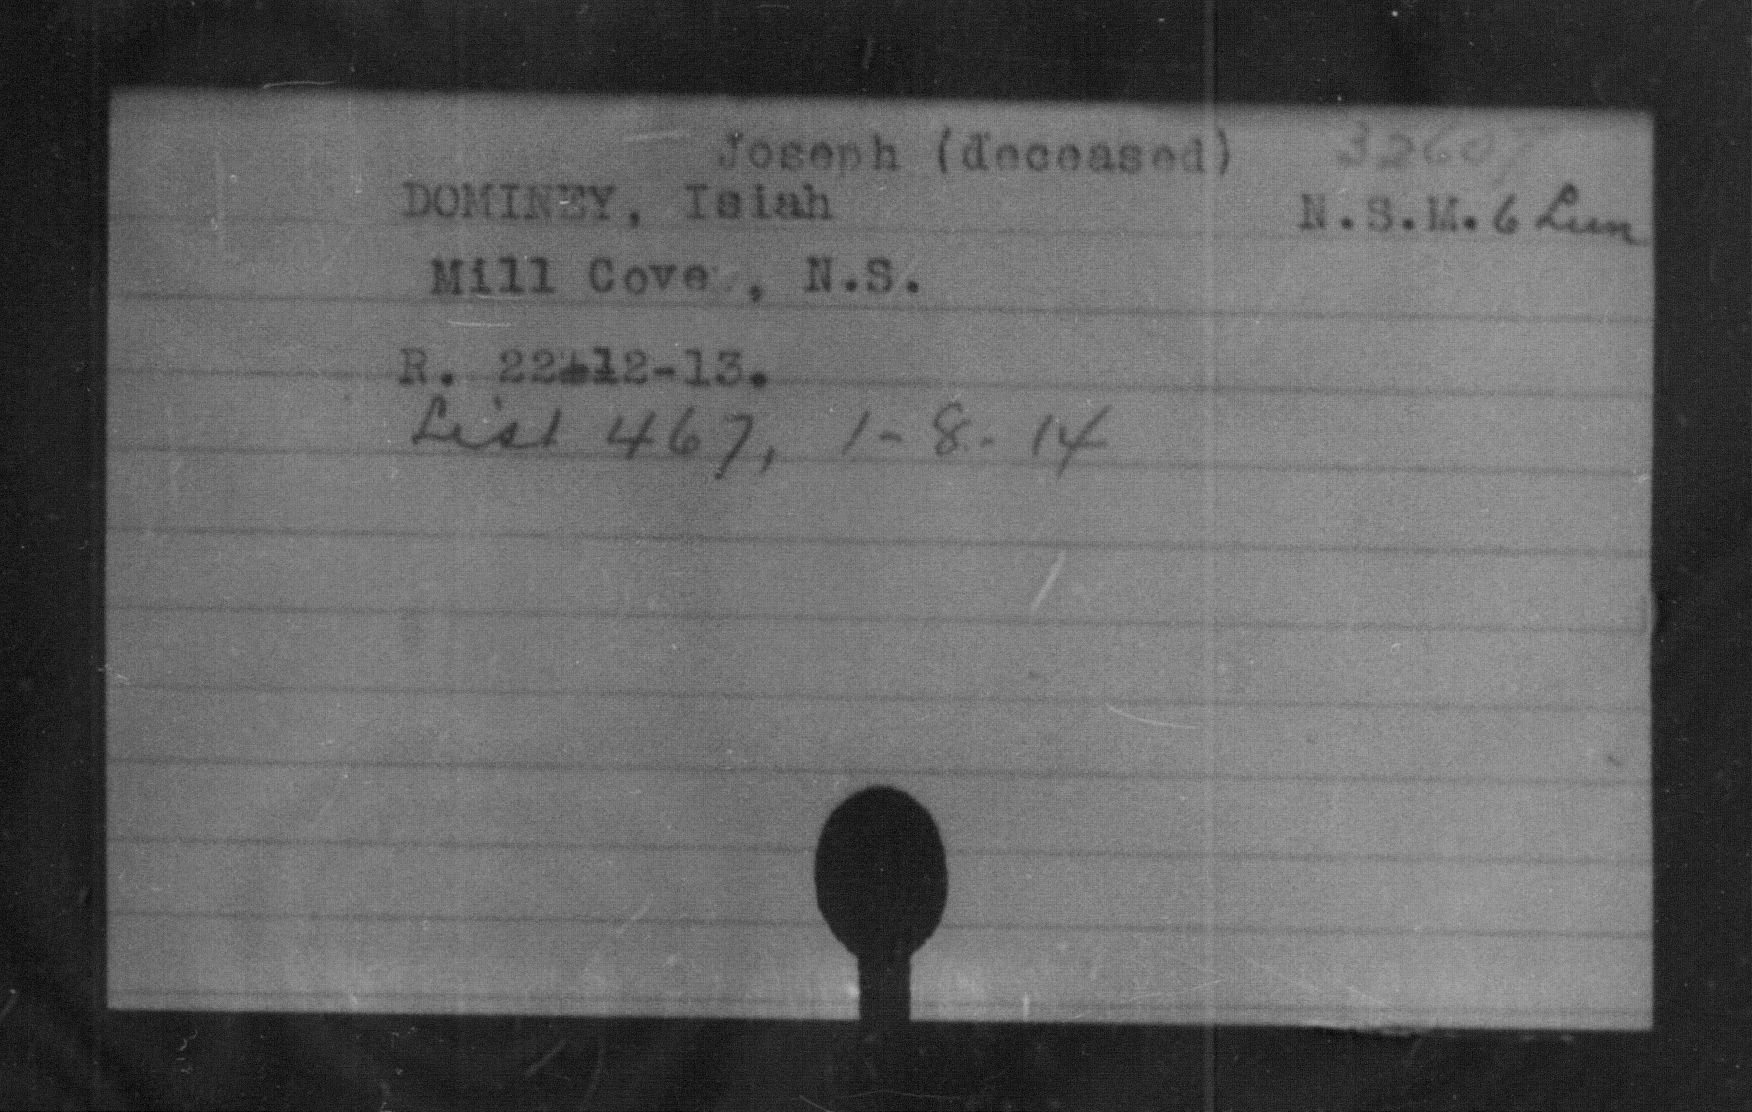 Joseph (deceased) 32607
DOMINEY, Isiah N.S.M. 6 Lun
Mill Cove, N.S.
R. 22-12-13.
List 467, 1-8-14